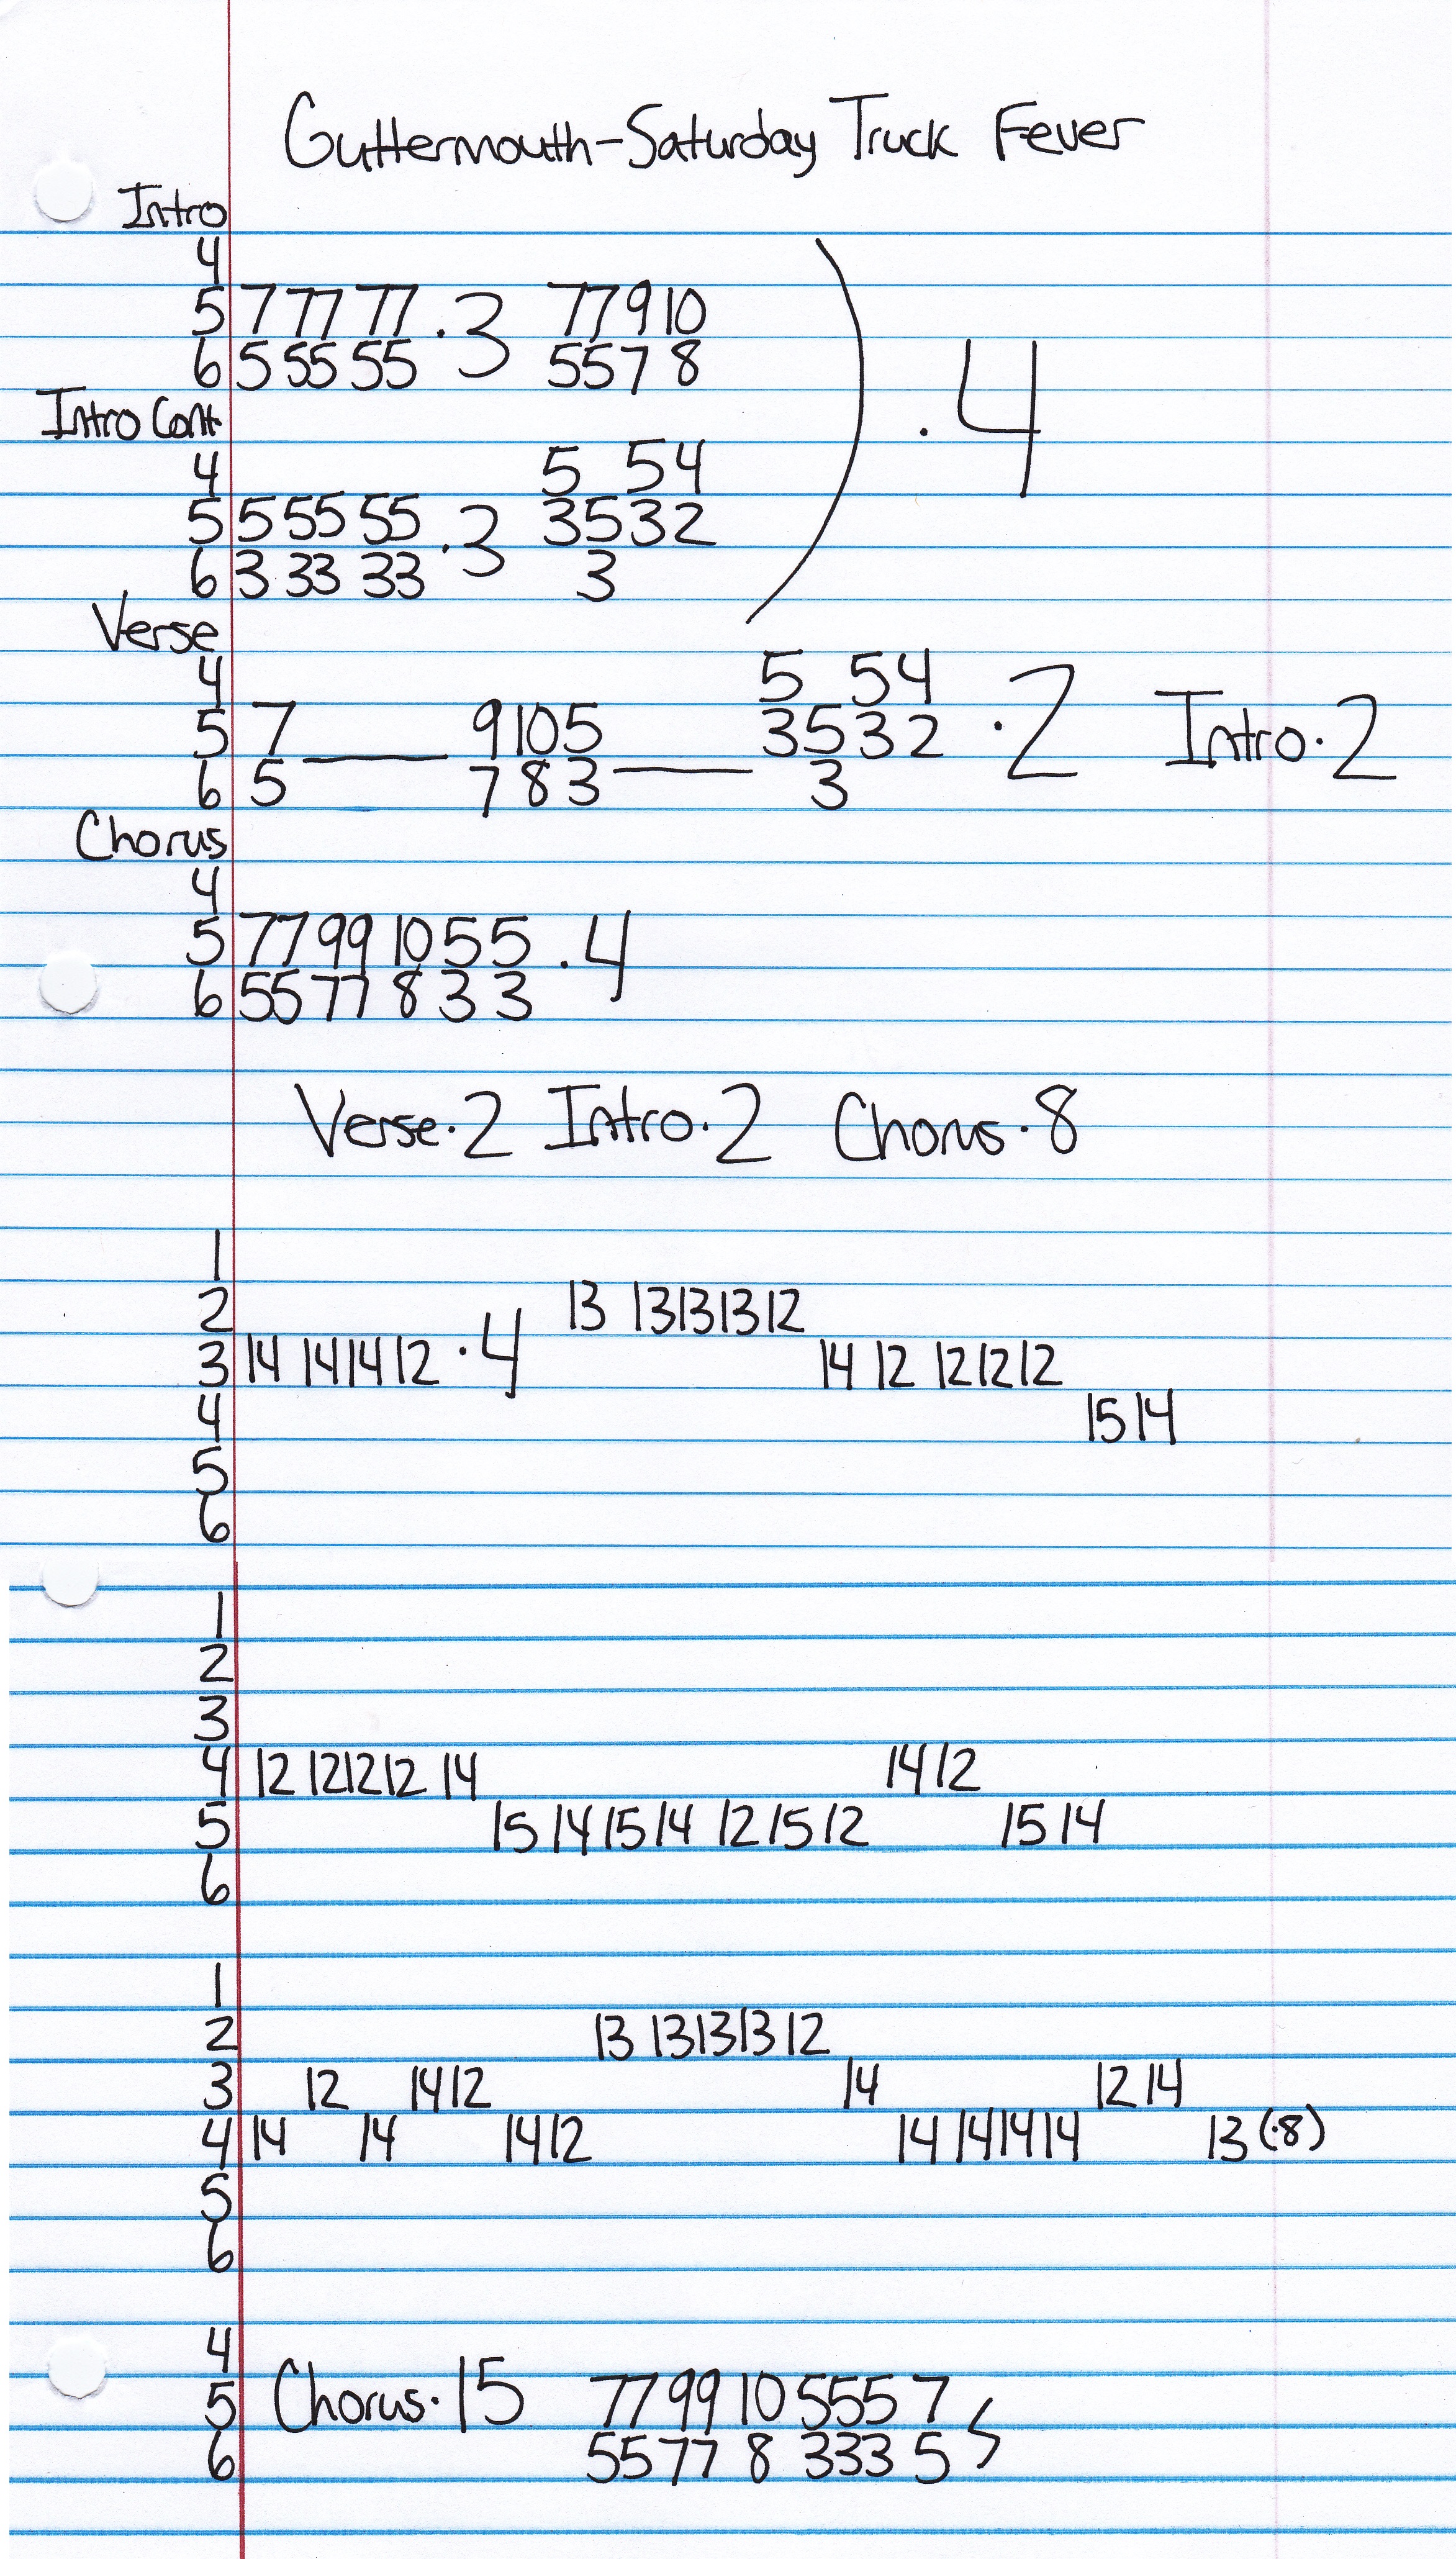 Guttermouth-Saturday Truck Fever
Intro
4
5 7 77 77 .3 77910
6 5 55 55 557 8
Intro Cont.
4 5 54
5 5 55 55 .3 3532
6 3 33 33 3
) .4
Verse
4 5 54
5 7 9105 3532 .2 Intro.2
6 5 ——— 7 83 ——— 3
Chorus
4
5 7799 1055 .4
6 5577 8 3 3
Verse.2 Intro.2 Chorus.8
1
2 13 13131312
3 14 141412 .4 14 12 121212
4 1514
5
6
1
2
3
4 12 121212 14 1412
5 15 141514 121512 1514
6
1
2 13 13131312
3 12 1412 14 1214
4 14 14 1412 14 141414 13(.8)
5
6
4
5 Chorus.15 7799 10 555 7
6 5577 8 333 5